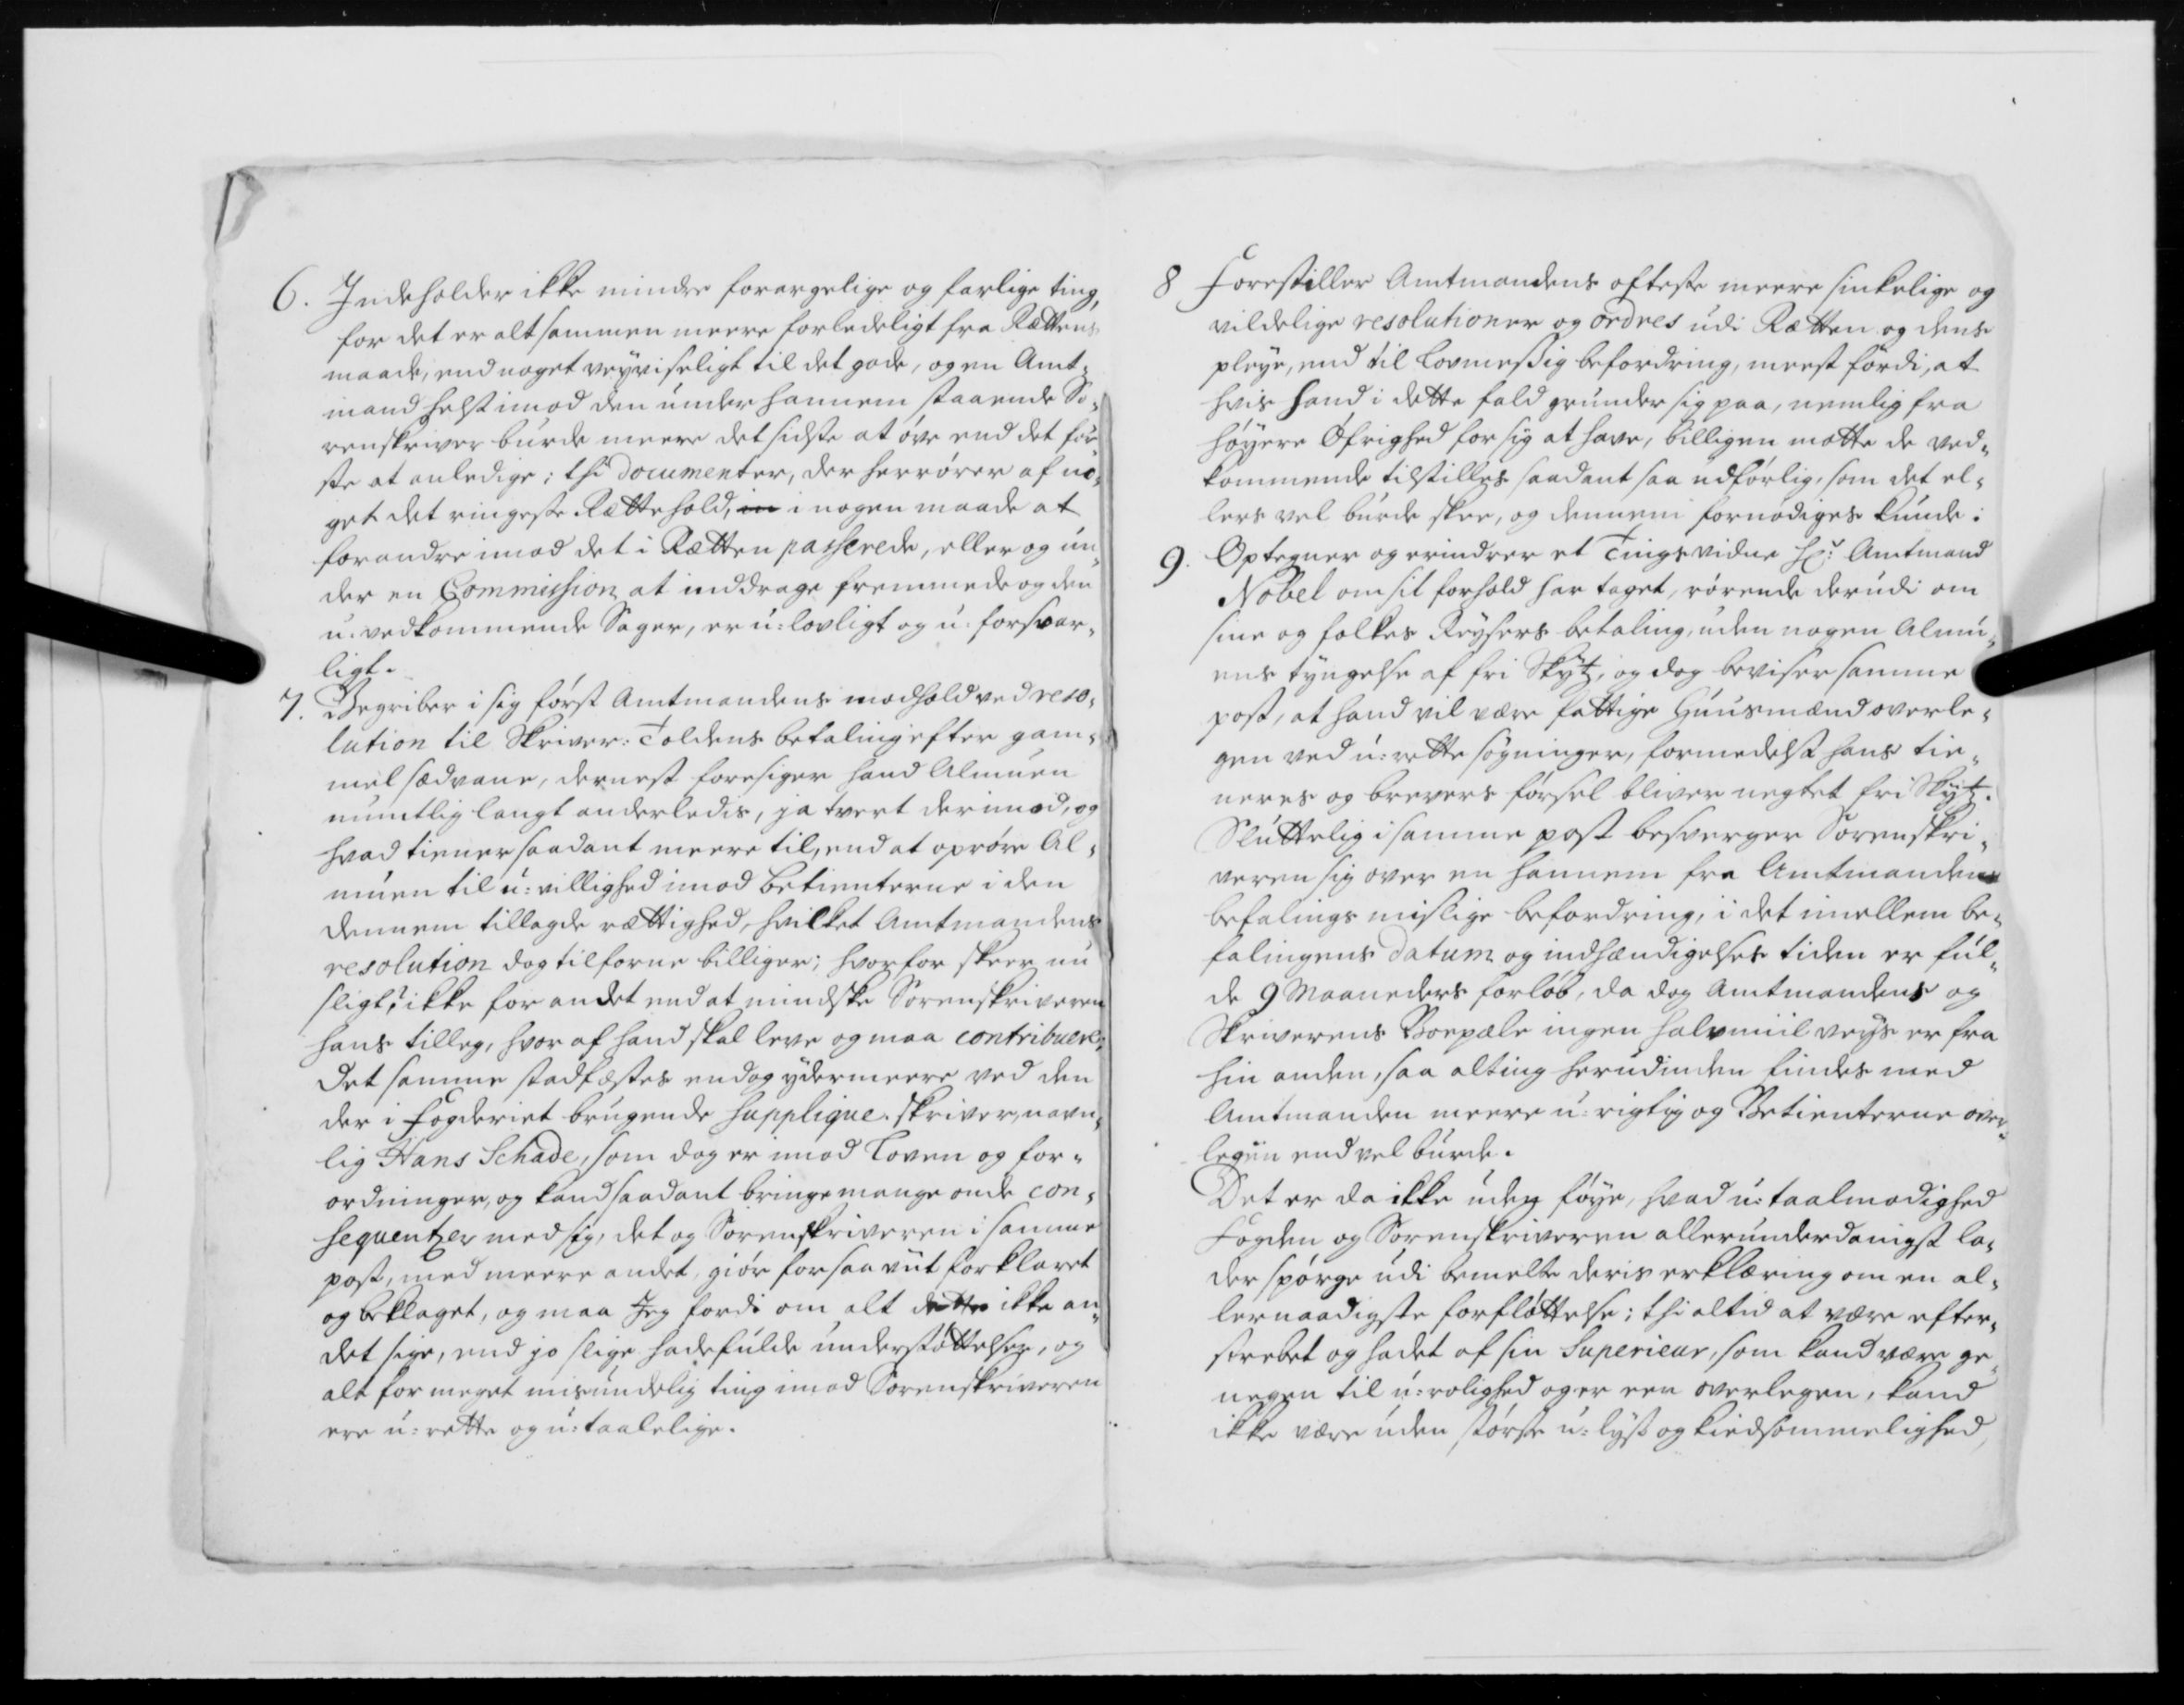 6. Indeholder ikke mindre forargelige og farlige ting,
for det er altsammen meere forledeligt fra Rættens
maade, end noget veyviseligt til det gode, og en Amt-
mand helst imod den under hannem staaende So-
renskriver burde meere det sidste at øve end det før-
ste at anledige; thi documenter, der herrører af no-
get det ringeste Rættehold, i nogen maade at
forandre imod det i Rætten passerede, eller og un-
der en Commission at inddrage fremmede og den
u-vedkommende Sager, er u-lovligt og u-forsvar-
ligt.
7. Begriber i sig først Amtmandens modhold ved reso-
lution til Skriver-Toldens betaling efter gam-
mel sædvane, dernest foresiger hand Almuen
mundtlig langt anderledis, ja tvert derimod, og
hvad tiener saadant meere til, end at oprøre Al-
muen til u-villighed imod betienterne i den
dennem tillagde rættighed, hvilket Amtmandens
resolution dog tilforne billiger; hvorfor skeer nu
sligt? ikke for andet end at mindske Sorenskriveren
hans tilleg, hvor af hand skal leve og maa contribuere;
det samme stadfæstes endog ydermeere ved den
der i fogderiet brugende supplique-skriver, navn-
lig Hans Schade, som dog er imod Loven og for-
ordninger, og kand saadant bringe mange onde con-
sequentzer med sig, det og Sorenskriveren i samme
post, med meere andet, giør forsaaviit forklaret
og beklaget, og maa Jeg fordi om alt dette ikke an-
det sige, end jo slige hadefulde understøttelser, og
alt for meget misundelig ting imod Sorenskriveren
ere u-rette og u-taalelige.
8 Forestiller Amtmandens ofteste meere sinkelige og
vildelige resolutioner og ordres udi Rætten og dens
pleye, end til Lovmessig befordring, meest fordi, at
hvis hand i dette fald grunder sig paa, nemlig fra
høyere Øfrighed for sig at have, billigen motte de ved-
kommende tilstilles saadant saa udførlig, som det el-
lers vel burde skee, og dennem fornødiges kunde:
9. Optegner og erindrer et Tingsvidne Hr: Amtmand
Nobel om sit forhold har taget, rørende derudi om
sine og folkes Reysers betaling, uden nogen Almu-
ens tyngelse af fri Skytz, og dog beviser samme
post, at hand vil være fattige Huusmænd overle-
gen ved u-rette søgninger, formedelst hans tie-
neres og brevers førsel bliver negtet fri Skytz.
Sluttelig i samme post besverger Sorenskri-
veren sig over en hannem fra Amtmandens
befalings mislige befordring, i det imellem be-
falingens datum og indhændigelses tiden er ful-
de 9 Maaneders forløb, da dog Amtmandens og
Skriverens Boepæle ingen halvmiil veys er fra
hin anden, saa alting herudinden findes med
Amtmanden meere u-rigtig og Betienterne over-
legen end vel burde.
Det er da ikke uden føye, hvad u-taalmodighed
Fogden og Sorenskriveren allerunderdanigst la-
der spørge udi bemelte deris erklæring om en al-
lernaadigste forfløttelse; thi altid at være efter-
strebet og hadet af sin Superieur, som kand være ge-
negen til u-rolighed og er een overlegen, kand
ikke være uden største u-lyst og kiedsommelighed,